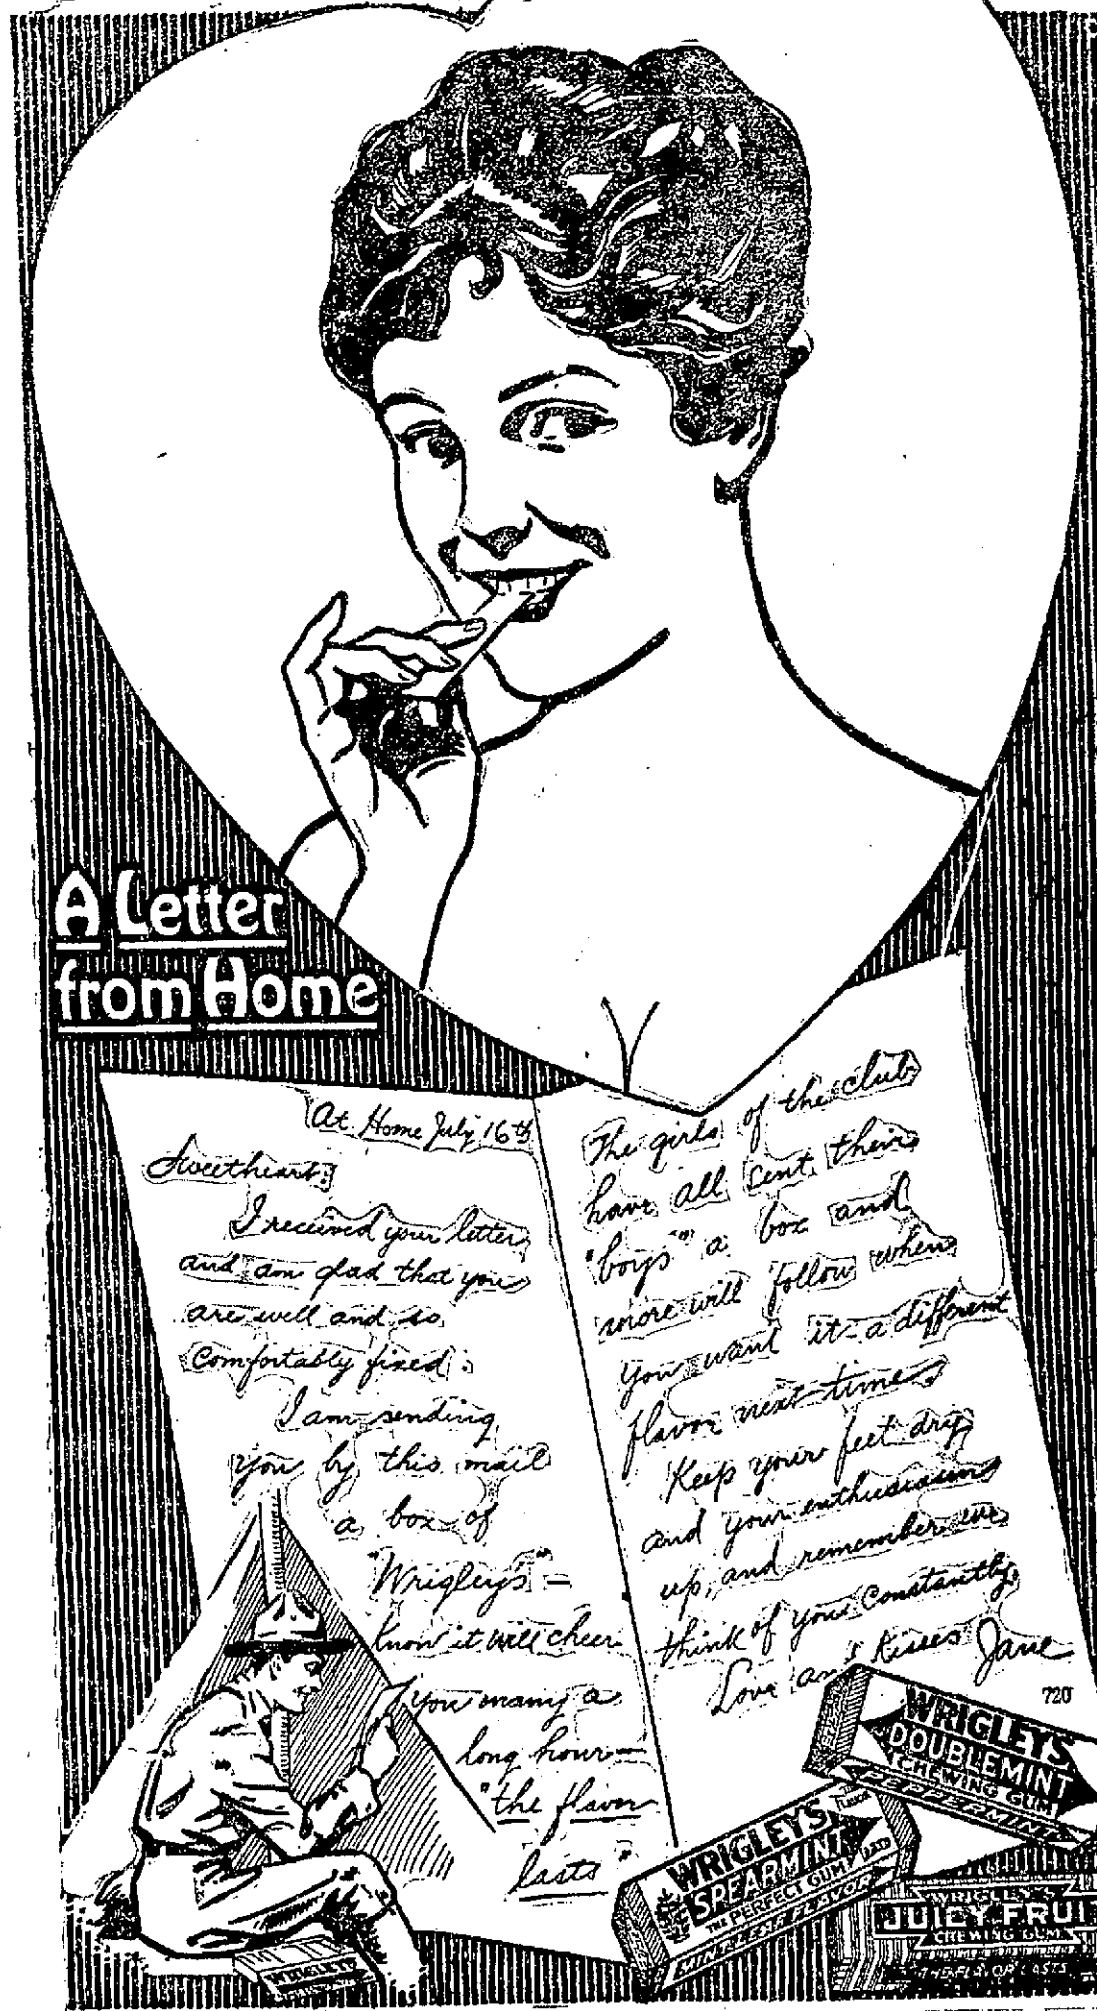 A Letter
from Home
At Home July 16th
Sweetheart:
I received your letter
and am glad that you
are well and so
comfortably fixed.
I am sending
you by this mail
a box of
"Wrigley's" –
know it will cheer
you many a
long hour –
"the flavor
lasts"
The girls of the club
have all sent their
"boys" a box and
more will follow when
you want it – a different
flavor next time.
Keep your feet dry,
and your enthusiasm
up, and remember we
think of you constantly.
Love and Kisses Jane
720
WRIGLEYS
DOUBLEMINT
CHEWING GUM
PEPPERMINT
WRIGLEYS
SPEARMINT
THE PERFECT GUM
MINT LEAF FLAVOR
FLAVOR
LASTS
WRIGLEY'S
JUICY FRUI
CHEWING GUM
THE FLAVOR LASTS
WRIGLEYS